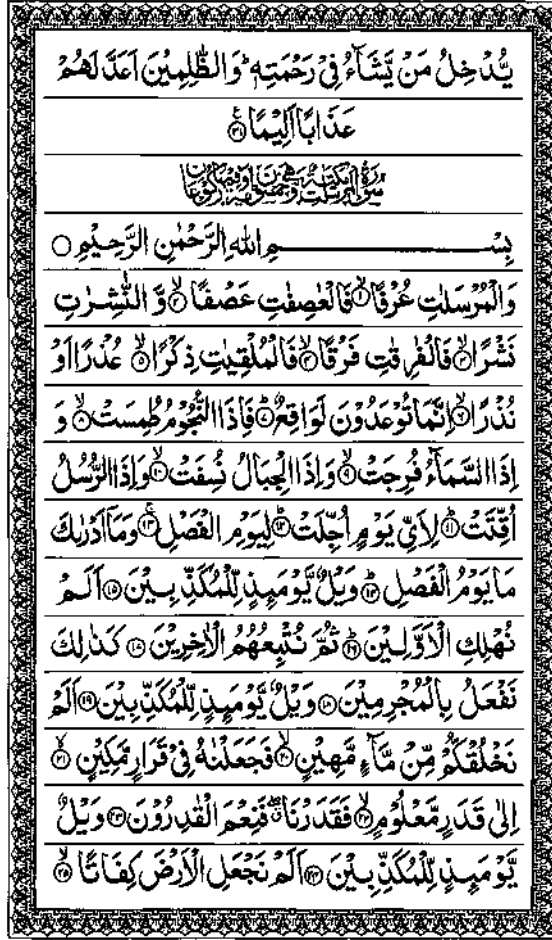 يُّدْخِلُ مَنْ يَّشَآءُ فِيْ رَحْمَتِهٖ ؕ وَالظّٰلِمِيْنَ اَعَدَّ لَهُمْ
عَذَابًا اَلِيْمًا ۧ﴿۳۱﴾
بِسْمِ اللهِ الرَّحْمٰنِ الرَّحِيْمِ ○
وَالْمُرْسَلٰتِ عُرْفًا ۙ﴿۱﴾ فَالْعٰصِفٰتِ عَصْفًا ۙ﴿۲﴾ وَّ النّٰشِرٰتِ
نَشْرًا ۙ﴿۳﴾ فَالْفٰرِقٰتِ فَرْقًا ۙ﴿۴﴾ فَالْمُلْقِيٰتِ ذِكْرًا ۙ﴿۵﴾ عُذْرًا اَوْ
نُذْرًا ۙ﴿۶﴾ اِنَّمَا تُوْعَدُوْنَ لَوَاقِعٌ ؕ﴿۷﴾ فَاِذَا النُّجُوْمُ طُمِسَتْ ۙ﴿۸﴾ وَ
اِذَا السَّمَآءُ فُرِجَتْ ۙ﴿۹﴾ وَ اِذَا الْجِبَالُ نُسِفَتْ ۙ﴿۱۰﴾ وَ اِذَا الرُّسُلُ
اُقِّتَتْ ؕ﴿۱۱﴾ لِاَيِّ يَوْمٍ اُجِّلَتْ ؕ﴿۱۲﴾ لِيَوْمِ الْفَصْلِ ۚ﴿۱۳﴾ وَمَاۤ اَدْرٰىكَ
مَا يَوْمُ الْفَصْلِ ؕ﴿۱۴﴾ وَيْلٌ يَّوْمَىِٕذٍ لِّلْمُكَذِّبِيْنَ ﴿۱۵﴾ اَلَمْ
نُهْلِكِ الْاَوَّلِيْنَ ؕ﴿۱۶﴾ ثُمَّ نُتْبِعُهُمُ الْاٰخِرِيْنَ ﴿۱۷﴾ كَذٰلِكَ
نَفْعَلُ بِالْمُجْرِمِيْنَ ﴿۱۸﴾ وَيْلٌ يَّوْمَىِٕذٍ لِّلْمُكَذِّبِيْنَ ﴿۱۹﴾ اَلَمْ
نَخْلُقْكُّمْ مِّنْ مَّآءٍ مَّهِيْنٍ ۙ﴿۲۰﴾ فَجَعَلْنٰهُ فِيْ قَرَارٍ مَّكِيْنٍ ۙ﴿۲۱﴾
اِلٰى قَدَرٍ مَّعْلُوْمٍ ۙ﴿۲۲﴾ فَقَدَرْنَا ۖ فَنِعْمَ الْقٰدِرُوْنَ ﴿۲۳﴾ وَيْلٌ
يَّوْمَىِٕذٍ لِّلْمُكَذِّبِيْنَ ﴿۲۴﴾ اَلَمْ نَجْعَلِ الْاَرْضَ كِفَاتًا ۙ﴿۲۵﴾